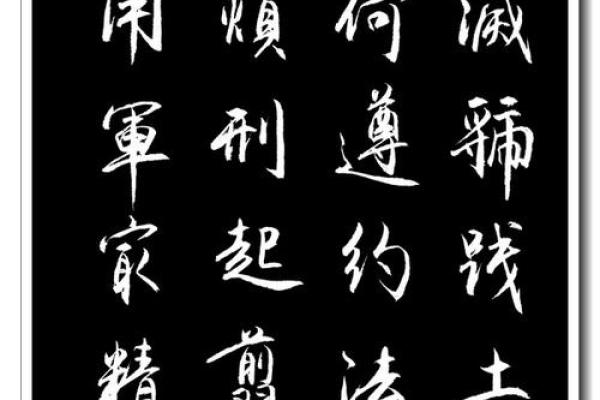 滅虢践土
何遵約法
煩刑起翦
用軍最精